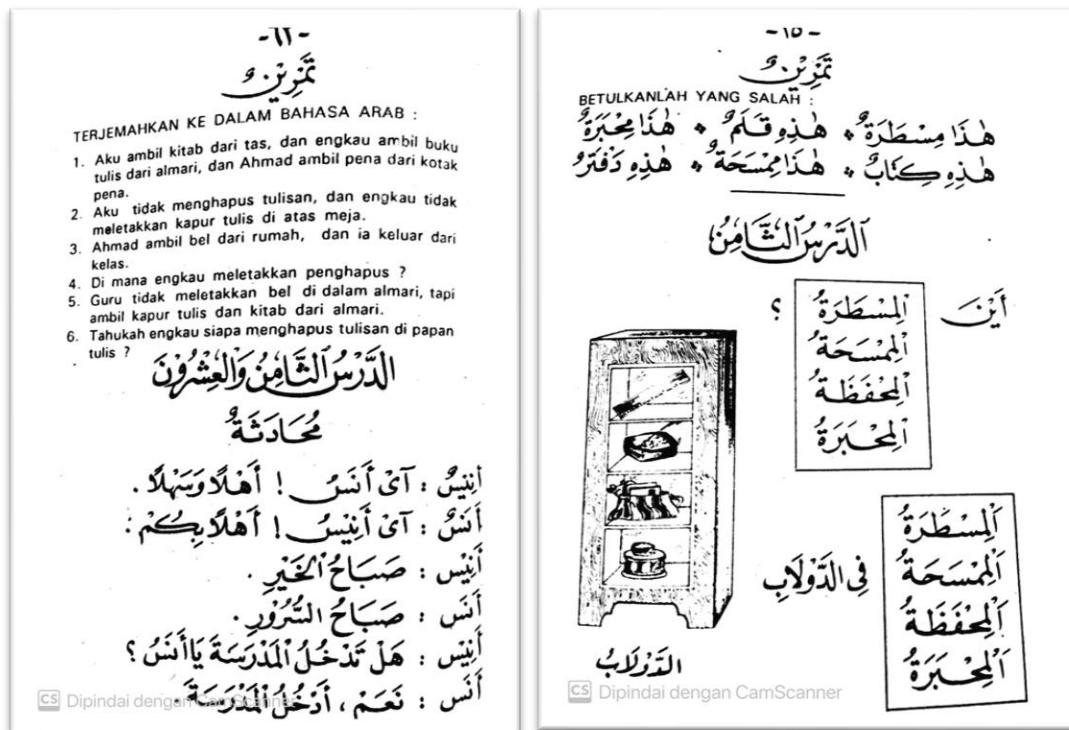 -٦٢-
تَمْرِيْنٌ
TERJEMAHKAN KE DALAM BAHASA ARAB :
1. Aku ambil kitab dari tas, dan engkau ambil buku
tulis dari almari, dan Ahmad ambil pena dari kotak
pena.
2. Aku tidak menghapus tulisan, dan engkau tidak
meletakkan kapur tulis di atas meja.
3. Ahmad ambil bel dari rumah, dan ia keluar dari
kelas.
4. Di mana engkau meletakkan penghapus ?
5. Guru tidak meletakkan bel di dalam almari, tapi
ambil kapur tulis dan kitab dari almari.
6. Tahukah engkau siapa menghapus tulisan di papan
tulis ?
اَلدَّرْسُ الثَّامِنُ وَالْعِشْرُوْنَ
مُحَادَثَةٌ
أَنِيْسٌ : آىْ أَنَسُ ! أَهْلًا وَسَهْلًا .
أَنَسٌ : آىْ أَنِيْسُ ! أَهْلًا بِكُمْ .
أَنِيْس : صَبَاحُ الْخَيْرِ .
أَنَس : صَبَاحُ السُّرُوْرِ .
أَنِيْس : هَلْ تَدْخُلُ الْمَدْرَسَةَ يَا أَنَسُ ؟
أَنَس : نَعَمْ ، أَدْخُلُ الْمَدْرَسَةَ
CS Dipindai dengan CamScanner
-١٥-
تَمْرِيْنٌ
BETULKANLAH YANG SALAH :
هٰذَا مِسْطَرَةٌ * هٰذِهِ قَلَمٌ * هٰذَا مِحْبَرَةٌ
هٰذِهِ كِتَابٌ * هٰذَا مِمْسَحَةٌ * هٰذِهِ دَفْتَرٌ
اَلدَّرْسُ الثَّامِنُ
أَيْنَ الْمِسْطَرَةُ ؟
الْمِمْسَحَةُ
الْمِحْفَظَةُ
الْمِحْبَرَةُ
اَلْمِسْطَرَةُ
اَلْمِمْسَحَةُ فِى الدَّوْلَابِ
اَلْمِحْفَظَةُ
اَلْمِحْبَرَةُ
الدَّوْلَابُ
CS Dipindai dengan CamScanner